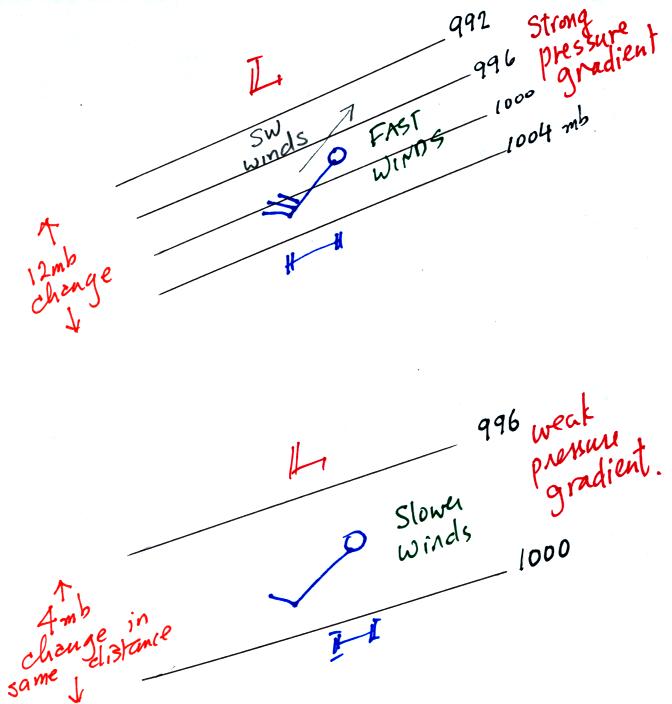 992
Strong
pressure
gradient
L
996
1000
1004 mb
SW
winds
FAST
WINDS
↑
12mb
change
↓
H
996
weak
pressure
gradient.
L
Slower
winds
1000
↑
4mb
change in
same distance
↓
H